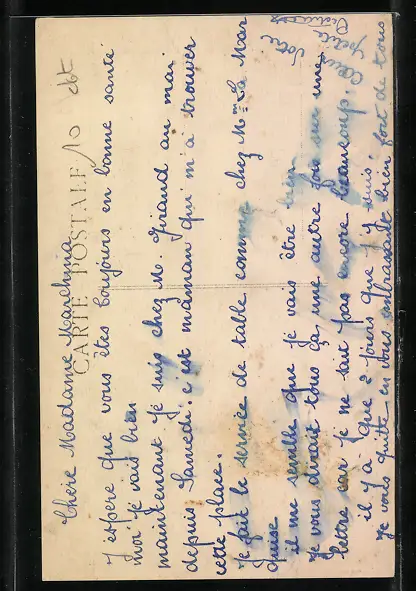 CARTE POSTALE
10
Chère Madame
J espere que vous êtes toujours en bonne santé
moi je vais bien
maintenant je suis chez M. Giraud au mai
depuis Samedi. c'est maman qui m'a trouver
cette place.
Je fait le service de table comme chez Mme La Mar
quise
il me semble que je vais être bien
Je vous dirait tous ça une autre fois sur une
lettre car je ne sait pas encore beaucoup.
il y a que 2 jours que j'y suis.
Je vous quitte en vous embrassant bien fort de tous
cœur
Votre
petite